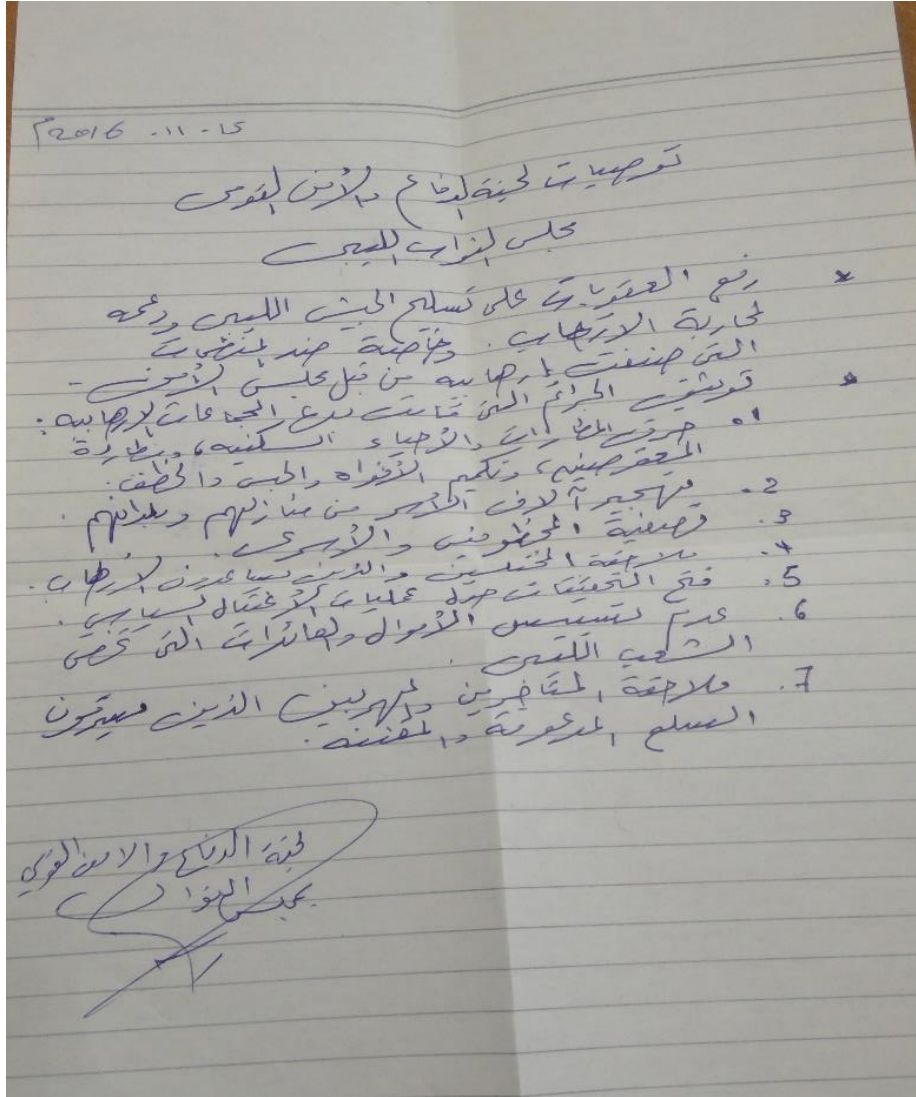 2016 - 11 - 15م
توصيات لجنة الدفاع والأمن القومي
مجلس النواب الليبي
* رفع العقوبات على تسليح الجيش الليبي ودعمه
لمحاربة الارهاب. وخاصة ضد المنظمات
التي صنفت إرهابيه من قبل مجلس الأمن -
* توثيق الجرائم التي قامت بها الجماعات الارهابيه :
1. حرق المطارات والأحياء السكنيه، ومطاردة
المعترضين، وتكميم الأفواه والحبس والخطف.
2. تهجير آلاف الأسر من منازلهم وبلدانهم.
3. تصفية المخطوفين والأسرى.
4. ملاحقة المختلسين والذين يساعدون الارهاب.
5. فتح التحقيقات حول عمليات الاغتيال السياسي.
6. عدم تسييس الأموال والعائدات التي تخص
الشعب الليبي.
7. ملاحقة المتاجرين والمهربين الذين يسرقون
السلع المدعومة والمقننه.
لجنة الدفاع والامن القومي
بمجلس النواب